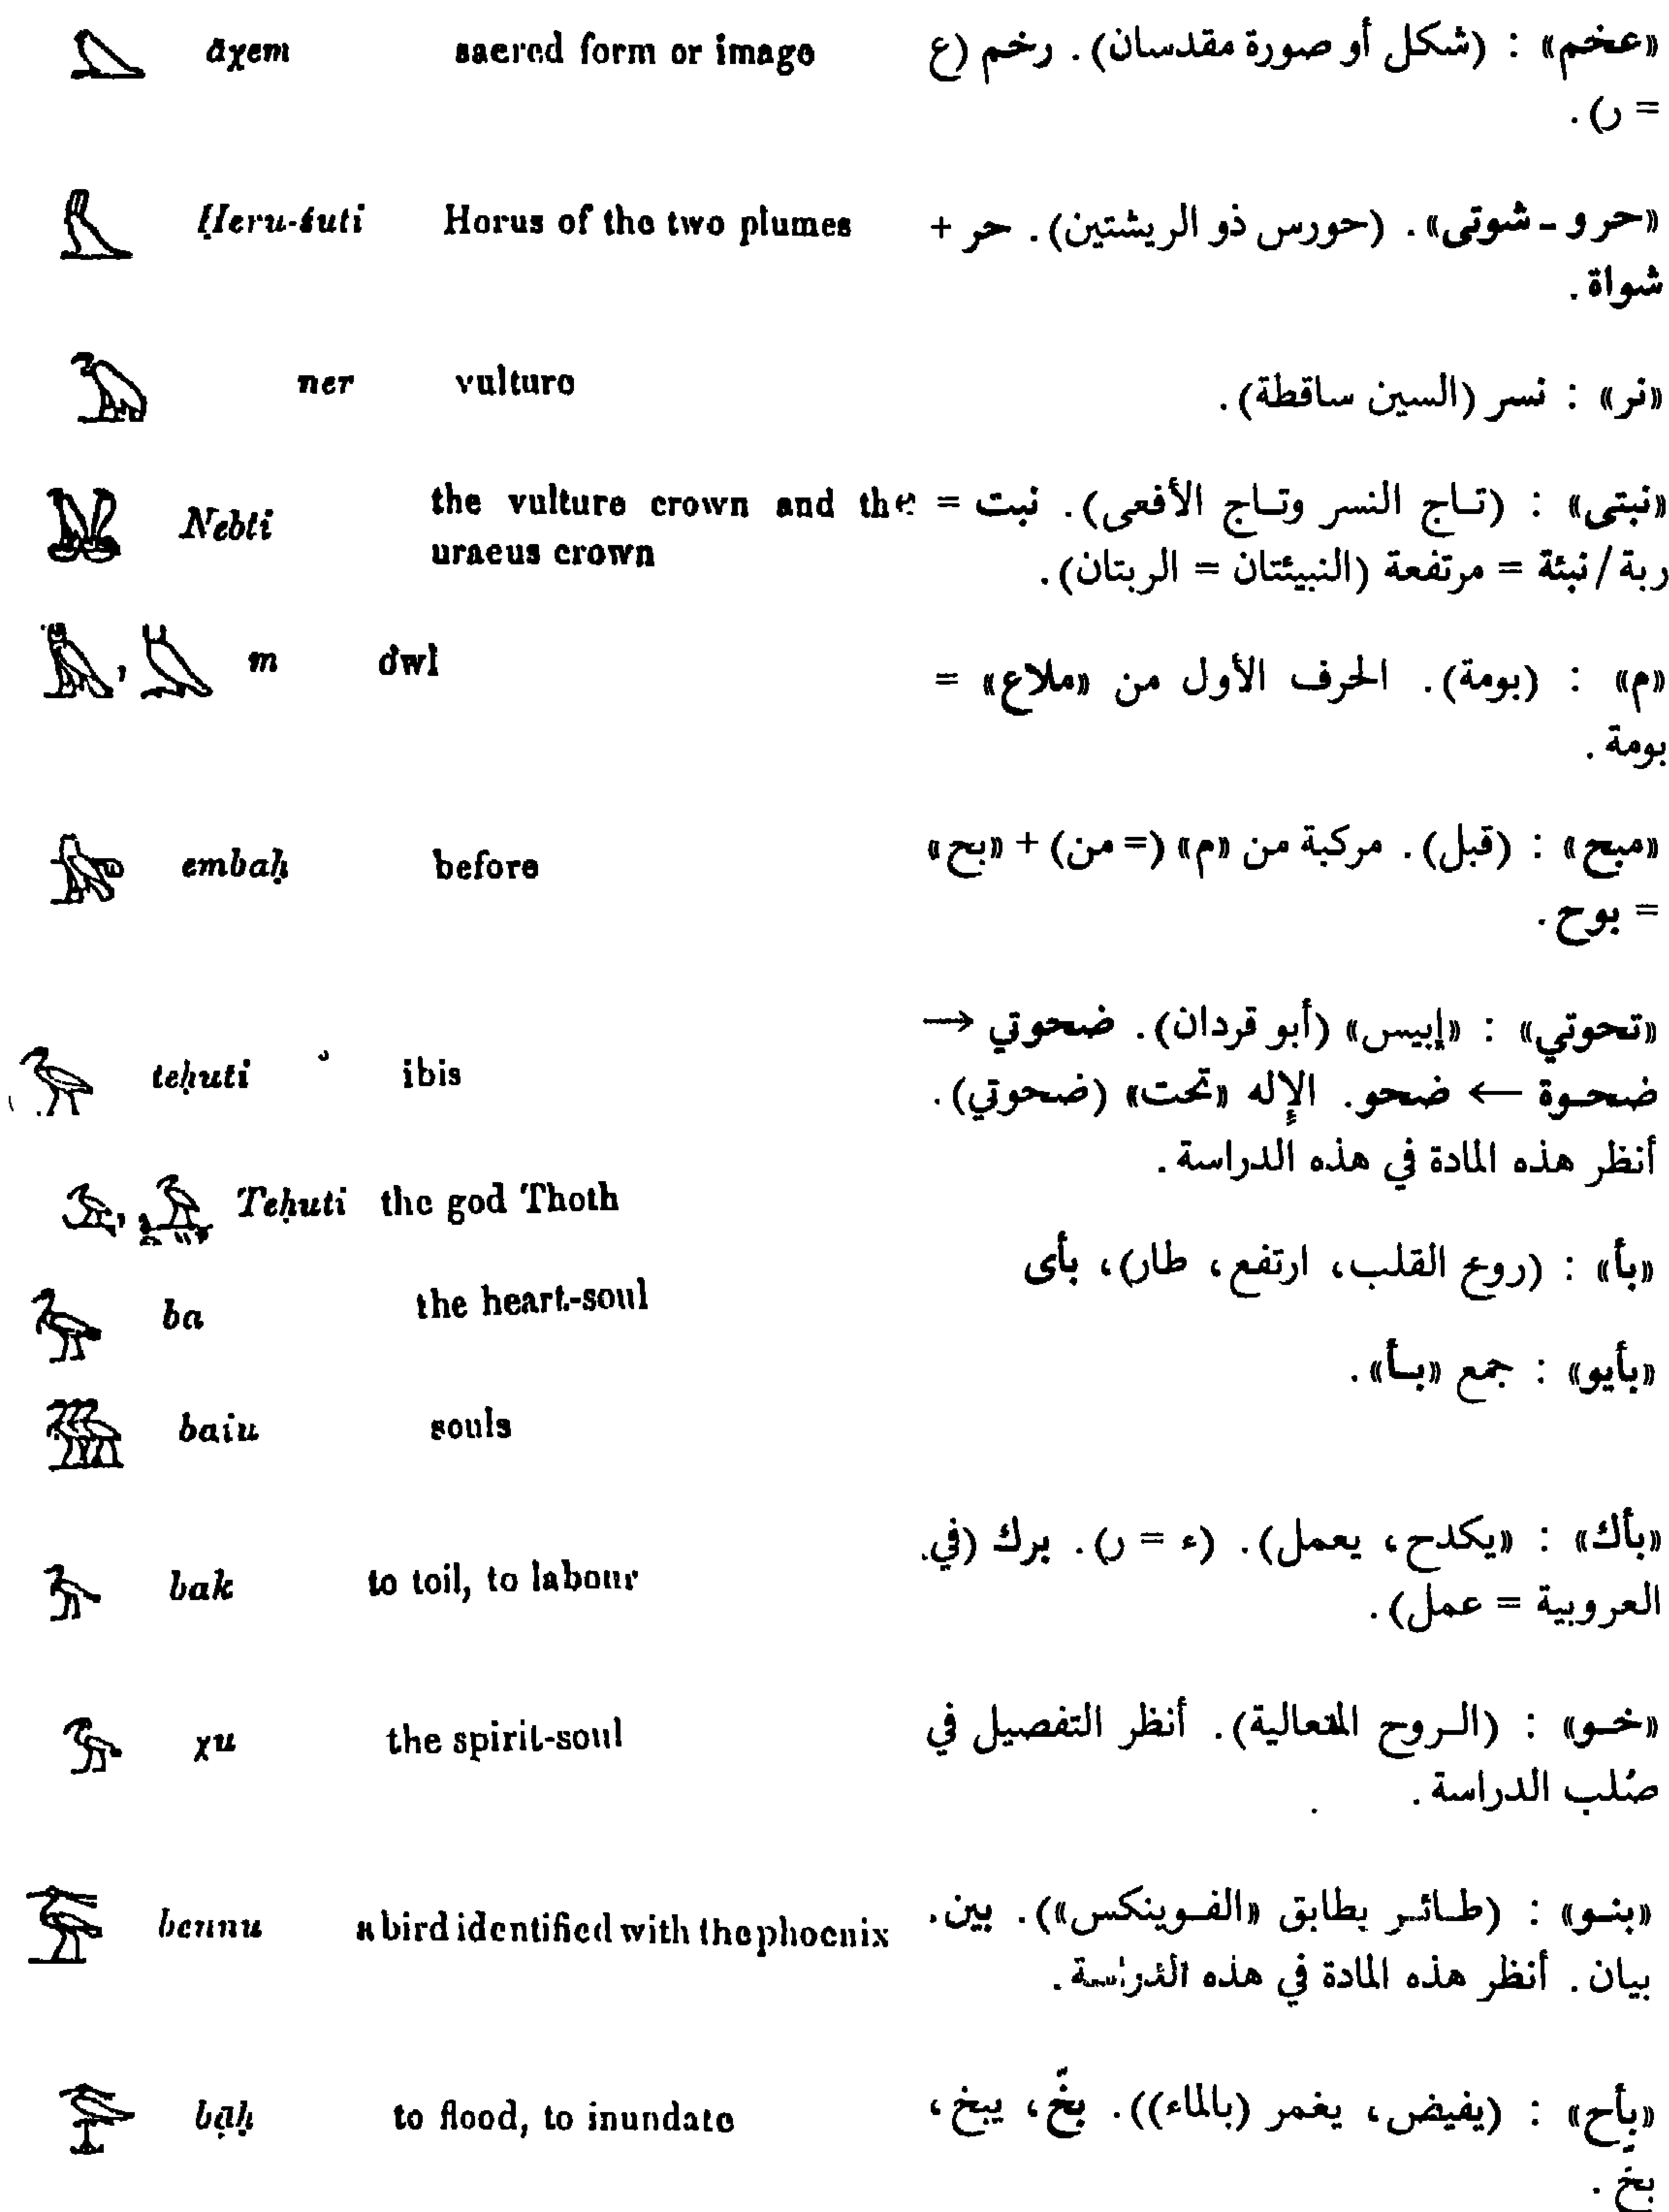 āχem sacred form or image «عخم» : (شكل أو صورة مقدسان). رخم (ع
= ر).
Ḥeru-śuti Horus of the two plumes «حرو - شوتى». (حورس ذو الريشتين). حر +
شواة.
ner vulture «نر» : نسر (السين ساقطة).
Nebti the vulture crown and the «نبتى» : (تاج النسر وتاج الأفعى). نبت =
uraeus crown ربة/نبئة = مرتفعة (النبيئتان = الربتان).
m owl «م» : (بومة). الحرف الأول من «ملاع» =
بومة.
embaḥ before «مبح» : (قبل). مركبة من «م» (= من) + «بح»
= بوح.
«تحوتي» : «إيبيس» (أبو قردان). ضحوتي ←
teḥuti ibis ضحوة ← ضحو. الإله «تحت» (ضحوتي).
أنظر هذه المادة في هذه الدراسة.
Teḥuti the god Thoth
«بأ» : (روع القلب، ارتفع، طار)، بأى
ba the heart-soul
«بأيو» : جمع «بأ».
baiu souls
bak to toil, to labour «بأك» : «يكدح، يعمل). (ء = ر). برك (في
العروبية = عمل).
χu the spirit-soul «خو» : (الروح المتعالية). أنظر التفصيل في
صُلب الدراسة.
bennu a bird identified with the phoenix «بنو» : (طائر يطابق «الفوينكس»). بين.
بيان. أنظر هذه المادة في هذه الدراسة.
bāḥ to flood, to inundate «بأح» : (يفيض، يغمر (بالماء)). بخّ، يبخ،
بخّ.